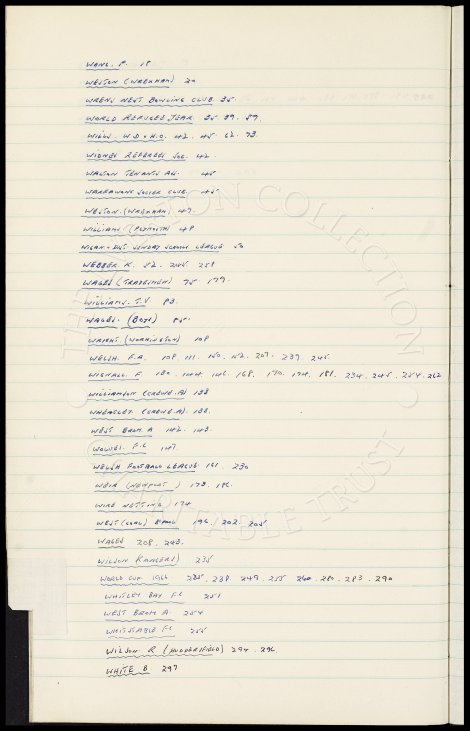 WANG. P. 18
WESTON (WREXHAM) 20
WRENS NEST BOWLING CLUB 35.
WORLD REFUGEE YEAR 35 39. 59
WILLS. W.D & H.O. 42. 45. 62. 73.
WIDNES REFEREES SOC. 42.
WALTON TENANTS 45
SOCCER CLUB. 45
WESTON. (WREXHAM). 47.
WILLIAMS (PLYMOUTH) 48
WIGAN & DIST SUNDAY SCHOOL LEAGUE 50
WEBBER K. 52. 205 258
WAGES (TRADESMEN) 75 179.
WILLIAMS. T.V 83.
WAGES. (BOYS) 85.
WRIGHT (WORKINGTON) 108
WELSH. F.A. 108. 111. 150. 152. 207. 239 245.
WIGNALL F. 130. 144. 146. 168. 170. 174. 181. 234. 245. 254. 262
WILLIAMSON (CREWE A) 138
WHEATLEY (CREWE A) 138.
WEST BROM A 142. 143.
WOLVES. F.C 147
WELSH FOOTBALL LEAGUE 161 230
WEIR (NEWPORT) 173. 186.
WIRE NETTING 174
WEST (GOAL) B'POOL 196. 202. 205
WAGES 208. 243.
WILSON RANGERS) 235
WORLD CUP 1966 235. 238 249. 255 260. 280. 283. 290
WHITLEY BAY F.C 251
WEST BROM A. 254
WHITSTABLE F.C 255
WILSON. R (HUDDERSFIELD) 294. 296
WHITE B 297